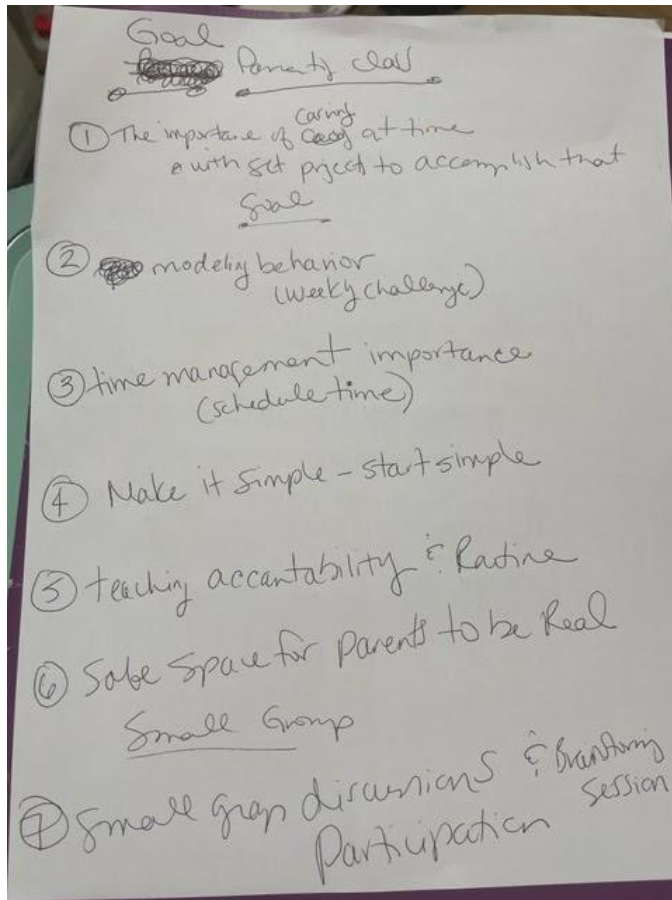 Goal
Parenting class
① The importance of carving at time
a with set project to accomplish that
Goal
② modeling behavior
(weekly challenge)
③ time management importance
(schedule time)
④ Make it simple - start simple
⑤ teaching accantability & Ratine
⑥ Safe space for parents to be Real
Small Group
⑦ Small grap discussions & Brainstorming
Session
Participation